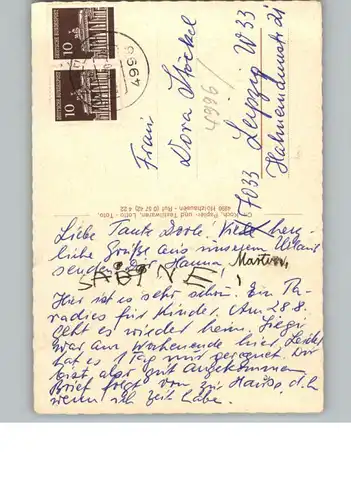 10
10
4996
Frau
Dora Stöckel
7033 Leipzig W33
4996/
Papier- und Textilwaren, Lotto - Toto
4991 Holzhausen - Ruf (0 57 42) 4 22
Liebe Tante Dorle. Viele herz-
liche Grüße aus unserem Urlaub
senden Dir Hanna Martin,
SABINE!!
Hier ist es sehr schön. Ein Pa-
radies für Kinder. Am 28.8.
geht es wieder heim. Siegfr.
war am Wochenende hier. Leider
hat es 1 Tag nur geregnet. Dir
geht aber gut angekommen.
Brief folgt von zu Hause d.h.
wenn ich Zeit habe.